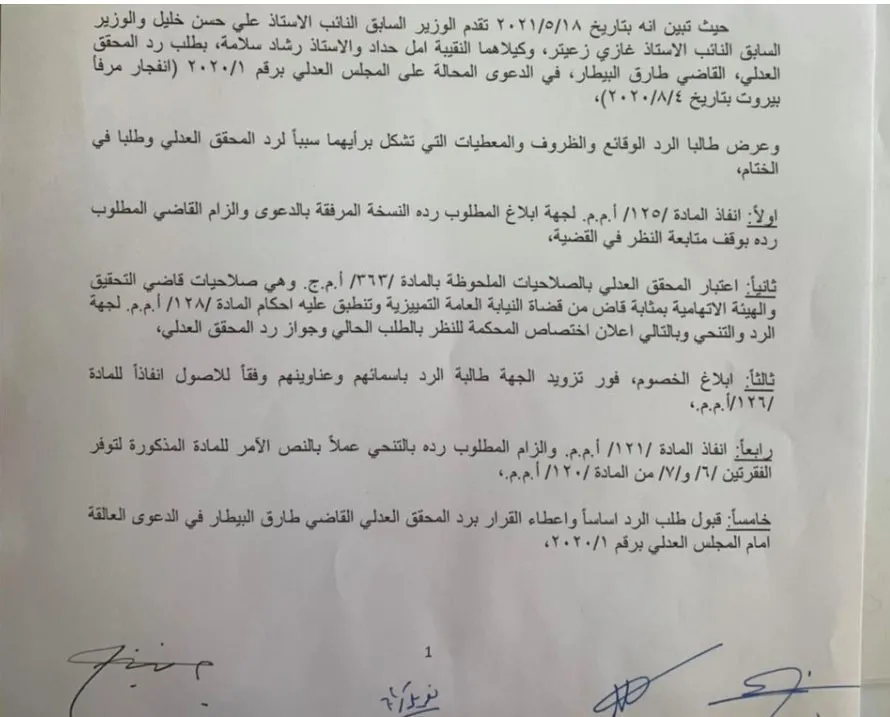 حيث تبين انه بتاريخ ٢٠٢١/٥/١٨ تقدم الوزير السابق النائب الاستاذ علي حسن خليل والوزير
السابق النائب الاستاذ غازي زعيتر، وكيلاهما النقيبة امل حداد والاستاذ رشاد سلامة، بطلب رد المحقق
العدلي، القاضي طارق البيطار، في الدعوى المحالة على المجلس العدلي برقم ٢٠٢٠/١ (انفجار مرفأ
بيروت بتاريخ ٢٠٢٠/٨/٤)،
وعرض طالبا الرد الوقائع والظروف والمعطيات التي تشكل برأيهما سبباً لرد المحقق العدلي وطلبا في
الختام،
اولاً: انفاذ المادة /١٢٥/ أ.م.م. لجهة ابلاغ المطلوب رده النسخة المرفقة بالدعوى والزام القاضي المطلوب
رده بوقف متابعة النظر في القضية،
ثانياً: اعتبار المحقق العدلي بالصلاحيات الملحوظة بالمادة /٣٦٣/ أ.م.ج. وهي صلاحيات قاضي التحقيق
والهيئة الاتهامية بمثابة قاض من قضاة النيابة العامة التمييزية وتنطبق عليه احكام المادة /١٢٨/ أ.م.م. لجهة
الرد والتنحي وبالتالي اعلان اختصاص المحكمة للنظر بالطلب الحالي وجواز رد المحقق العدلي،
ثالثاً: ابلاغ الخصوم، فور تزويد الجهة طالبة الرد باسمائهم وعناوينهم وفقاً للاصول انفاذاً للمادة
/١٢٦/أ.م.م.،
رابعاً: انفاذ المادة /١٢١/ أ.م.م. والزام المطلوب رده بالتنحي عملاً بالنص الآمر للمادة المذكورة لتوفر
الفقرتين /٦/ و/٧/ من المادة /١٢٠/ أ.م.م.،
خامساً: قبول طلب الرد اساساً واعطاء القرار برد المحقق العدلي القاضي طارق البيطار في الدعوى العالقة
امام المجلس العدلي برقم ٢٠٢٠/١،
1